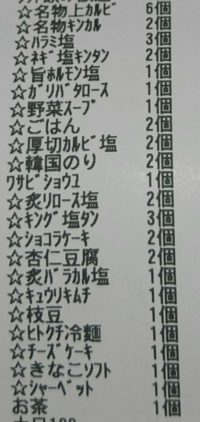 ☆名物上カルビ 6個
☆名物キンカル 2個
☆ハラミ塩 3個
☆ネギ塩キンタン 2個
☆旨ホルモン塩 1個
☆ガリバタロース 1個
☆野菜スープ 1個
☆ごはん 2個
☆厚切カルビ塩 2個
☆韓国のり 2個
ワサビショウユ 1個
☆炙リロース塩 2個
☆キング塩タン 3個
☆ショコラケーキ 2個
☆杏仁豆腐 2個
☆炙バラカルビ塩 1個
☆キュウリキムチ 1個
☆枝豆 1個
☆ヒトクチ冷麺 1個
☆チーズケーキ 1個
☆きなこソフト 1個
☆シャーベット 1個
お茶 1個